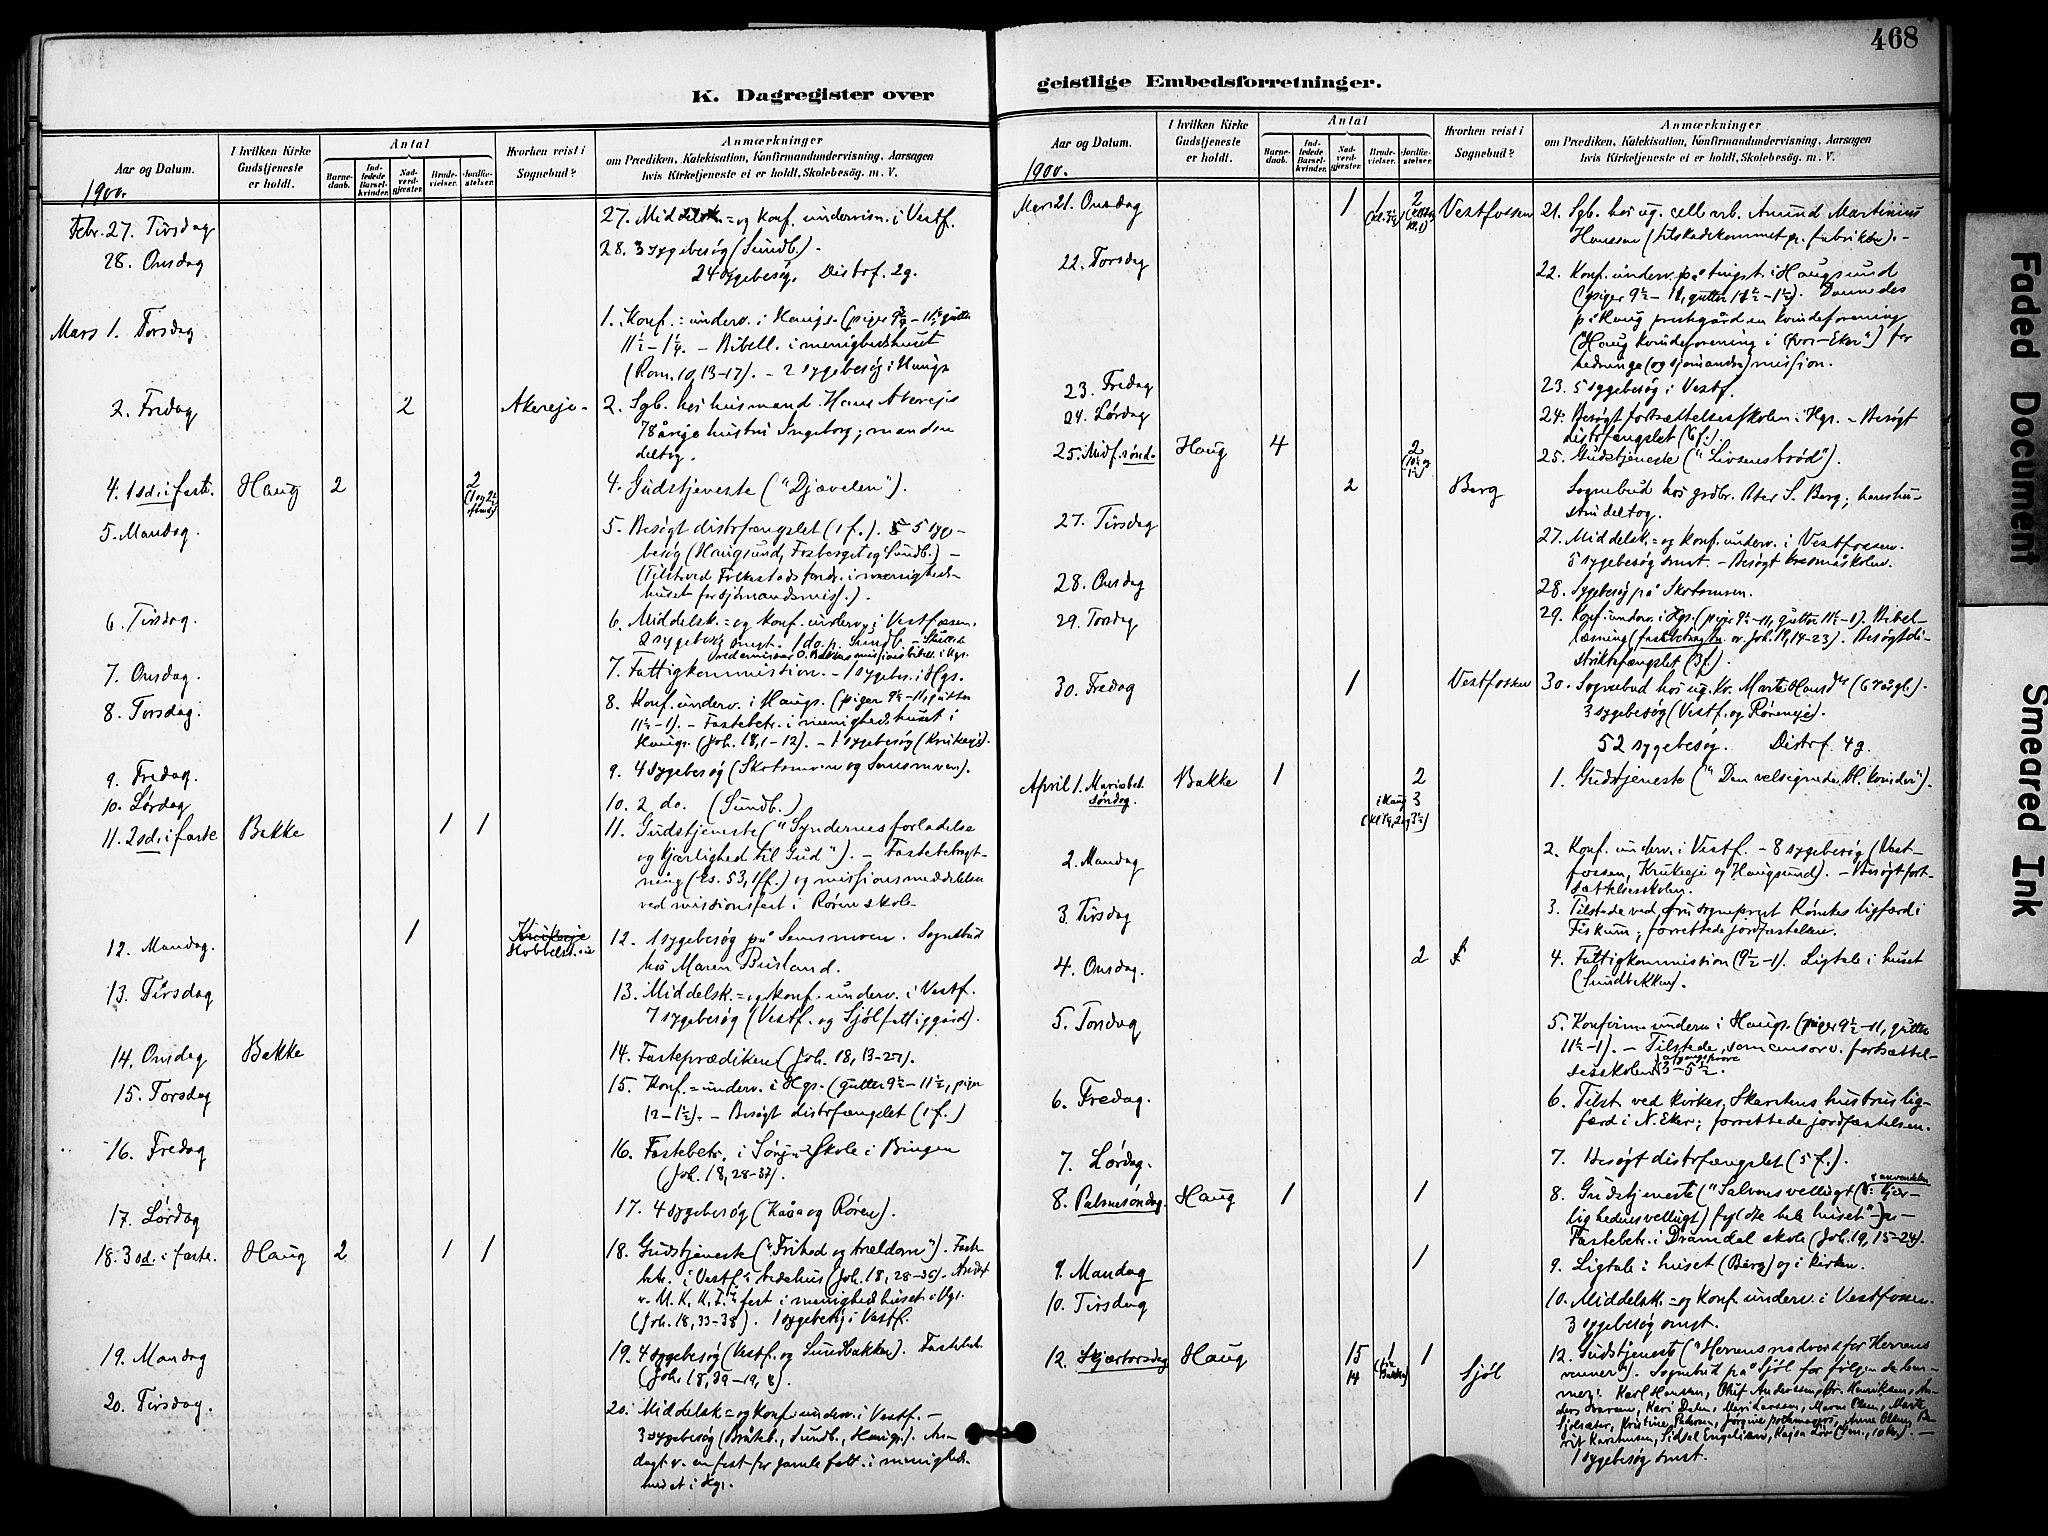 468
K. Dagregister over
Aar og Datum.
I hvilken Kirke Gudstjeneste er holdt.
Antal
Barnedaab.
Indledede Barselkvinder.
Nadverdgjester.
Brudevielser.
Jordfæstelser.
Hvorhen reist i Sognebud?
Anmærkninger
om Prædiken, Katekisation, Konfirmandundervisning, Aarsagen
hvis Kirketjeneste ei er holdt, Skolebesøg. m. V.
1900.
Febr. 27. Tirsdag 27. Middelsk.= og konf. undervisn. i Vestf.
28. Onsdag 28. 3 sygebesøg (Sundb.).
24 sygebesøg. Distrf. 2 g.
Mars 1. Torsdag 1. Konf.= underv. i Haugs. (piger
– Bibell. i menighedshuset
(Rom. 10, 13–17). – 2 sygebesøg i Haugs.
2. Fredag 2 Akereje. 2. Sgb. hos husmand Hans Akerejes
78årige hustru Ingeborg; manden
deltog.
4. 1 sd. i faste. Haug 2 2 4. Gudstjeneste ("Djævelen").
5. Mandag. 5. Besøgt distrfængslet (1 f.). 5 syge-
besøg (Haugsund, og Sundb.) –
(Tilsted i menigheds-
huset for sjömandsmis.).
6. Tirsdag. 6. Middelsk.= og konf. underv. i Vestfossen.
2 sygebesøg smst. 1 do. p. Sundb. –
7. Onsdag. 7. Fattigkommission. – 1 sygebes. i Hgs.
8. Torsdag. 8. Konf. underv. i Haugs. (piger 9½–11, gutter
11½–1). – Fastebetr. i menighedshuset i
Haugs. (Joh. 18, 1–12). – 1 sygebesøg (Krukeeje).
9. Fredag. 9. 4 sygebesøg (Skotsmoen og Semsmoen).
10. Lørdag 10. 2 do. (Sundb.)
11. 2 sd. i faste Bakke 1 1 11. Gudstjeneste ("Syndernes forladelse
og kjærlighed til Gud"). – Fastebetragt-
ning (Es. 53, 1 ff.) og missionsmeddelelse
ved missionsfest i Røren skole.
12. Mandag. 1 12. 1 sygebesøg på Semsmoen. Sognebud
hos Maren Busland.
13. Tirsdag 13. Middelsk.= og konf. underv. i Vestf.
7 sygebesøg (Vestf. og Sjöl fattiggård).
14. Onsdag Bakke 14. Fasteprædiken (Joh. 18, 13–27).
15. Torsdag 15. Konf.= underv. i Hgs. (gutter 9½–11½, piger
12–1½). – Besøgt distrfængslet (1 f.)
16. Fredag 16. Fastebetr. i Skole i Bingen
(Joh. 18, 28–37).
17. Lørdag 17. 4 sygebesøg (Kåsa og Røren).
18. 3 sd. i faste. Haug 2 1 1 18. Gudstjeneste ("Frihed og trældom"). Faste-
betr. i Vestf.s bedehus (Joh. 18, 28–36). Andagt
v. fest i menighedshuset i Hgs.
(Joh. 18, 33–38). 1 sygebesøg i Vestf.
19. Mandag 19. 4 sygebesøg (Vestf. og Sundbakken). Fastebetr.
(Joh. 18, 39–19, 8).
20. Tirsdag. 20. Middelsk.= og konf. underv. i Vestf. –
3 sygebesøg (Bråtb., Sundb., Haugs.). An-
dagt v. en fest for gamle folk i menigheds-
huset i Hgs.
geistlige Embedsforretninger.
Aar og Datum.
I hvilken Kirke Gudstjeneste er holdt.
Antal
Barnedaab.
Indledede Barselkvinder.
Nadverdgjester.
Brudevielser.
Jordfæstelser.
Hvorhen reist i Sognebud?
Anmærkninger
om Prædiken, Katekisation, Konfirmandundervisning, Aarsagen
hvis Kirketjeneste ei er holdt, Skolebesøg. m. V.
1900.
Mars 21. Onsdag 1 1 2 Vestfossen 21. Sgb. hos ug. cell.arb. Amund Martinius
Hanssen (tilskadekommet p. fabrikken). –
22. Torsdag 22. Konf. underv. på tingst. i Haugsund
(piger 9½–11, gutter Dannedes
på Haug prestgård en kvindeforening
("Haug kvindeforening i Øvre-Eker") for
hedninge (og sjömands) mission.
23. Fredag 23. 5 sygebesøg i Vestf.
24. Lørdag 24. Besøgt fortsættelsesskolen i Hgs. – Besøgt
distrfængslet (6 f.).
25. Midf.sønd. Haug 4 2 25. Gudstjeneste ("Livsens brød").
2 Berg Sognebud hos grdbr. Peter S. Berg; hans hu-
stru deltog.
27. Tirsdag 27. Middelsk.= og konf. underv. i Vestfossen.
5 sygebesøg smst. – Besøgt småskolen.
28. Onsdag 28. Sygebesøg på Skotsmoen.
29. Torsdag 29. Konf. underv. i Hgs. (piger 9½–11, gutter 11½–1). Bibel-
læsning (fastebetragtn. ov. Joh. 19, Besøgt di-
striktsfængslet (3 f.).
30. Fredag 1 Vestfossen 30. Sognebud hos ug. kv. Marte (67 år gl.).
3 sygebesøg (Vestf. og Røreneje).
52 sygebesøg. Distrf. 4 g.
April 1. Mariæbeb. søndag. Bakke 1 2 1. Gudstjeneste ("Den velsignede bl. kvinder").
i Haug 3
2. Mandag 2. Konf. underv. i Vestf. – 8 sygebesøg (Vest-
fossen, Krukeeje og Haugsund). – Besøgt fort-
sættelsesskolen.
3. Tirsdag 3. Tilstede ved fru sogneprest Rømkes ligfærd i
Fiskum; forrettede jordfæstelsen.
4. Onsdag. 2 4. Fattigkommission (9½–1). Ligtale i huset
(Sundbakken).
5. Torsdag 5. Konfirm. underv. i Haugs. (piger 9½–11, gutter
11½–1). – Tilstede som censor v. fortsættel-
sesskolens afgangsprøve 3–5½.
6. Fredag. 6. Tilst. ved kirkes. Karstens hustrus lig-
færd i N. Eker; forrettede jordfæstelsen.
7. Lørdag. 7. Besøgt distrfængslet (5 f.).
8. Palmesøndag. Haug 1 1 8. Gudstjeneste ("Salvens vellugt (ɔ: kjær-
lighedens vellugt) fyldte hele huset") –
Fastebetr. i Dramdal skole (Joh. 19, 15–24).
9. Mandag 1 9. Ligtale i huset (Berg) og i kirken.
10. Tirsdag 10. Middelsk.= og konf. underv. i Vestfossen.
3 sygebesøg smst.
12. Skjærtorsdag Haug 15 1 1 12. Gudstjeneste ("Herrens nadverd for Herrens
14 Sjöl venner"). Sognebud på Sjöl for følgende lem-
mer: Karl Hansen, Oluf Andersen, Br. Henriksen, An-
ders Kari Dalen, Mari Larsen, Maren Olsen, Marte
Kristine Pedersen, Jörgine Anne Olsen, Be-
rit Karstensen, Sidsel Engelien, Kajsa –
1 sygebesøg smst.
Faded Document
Smeared Ink